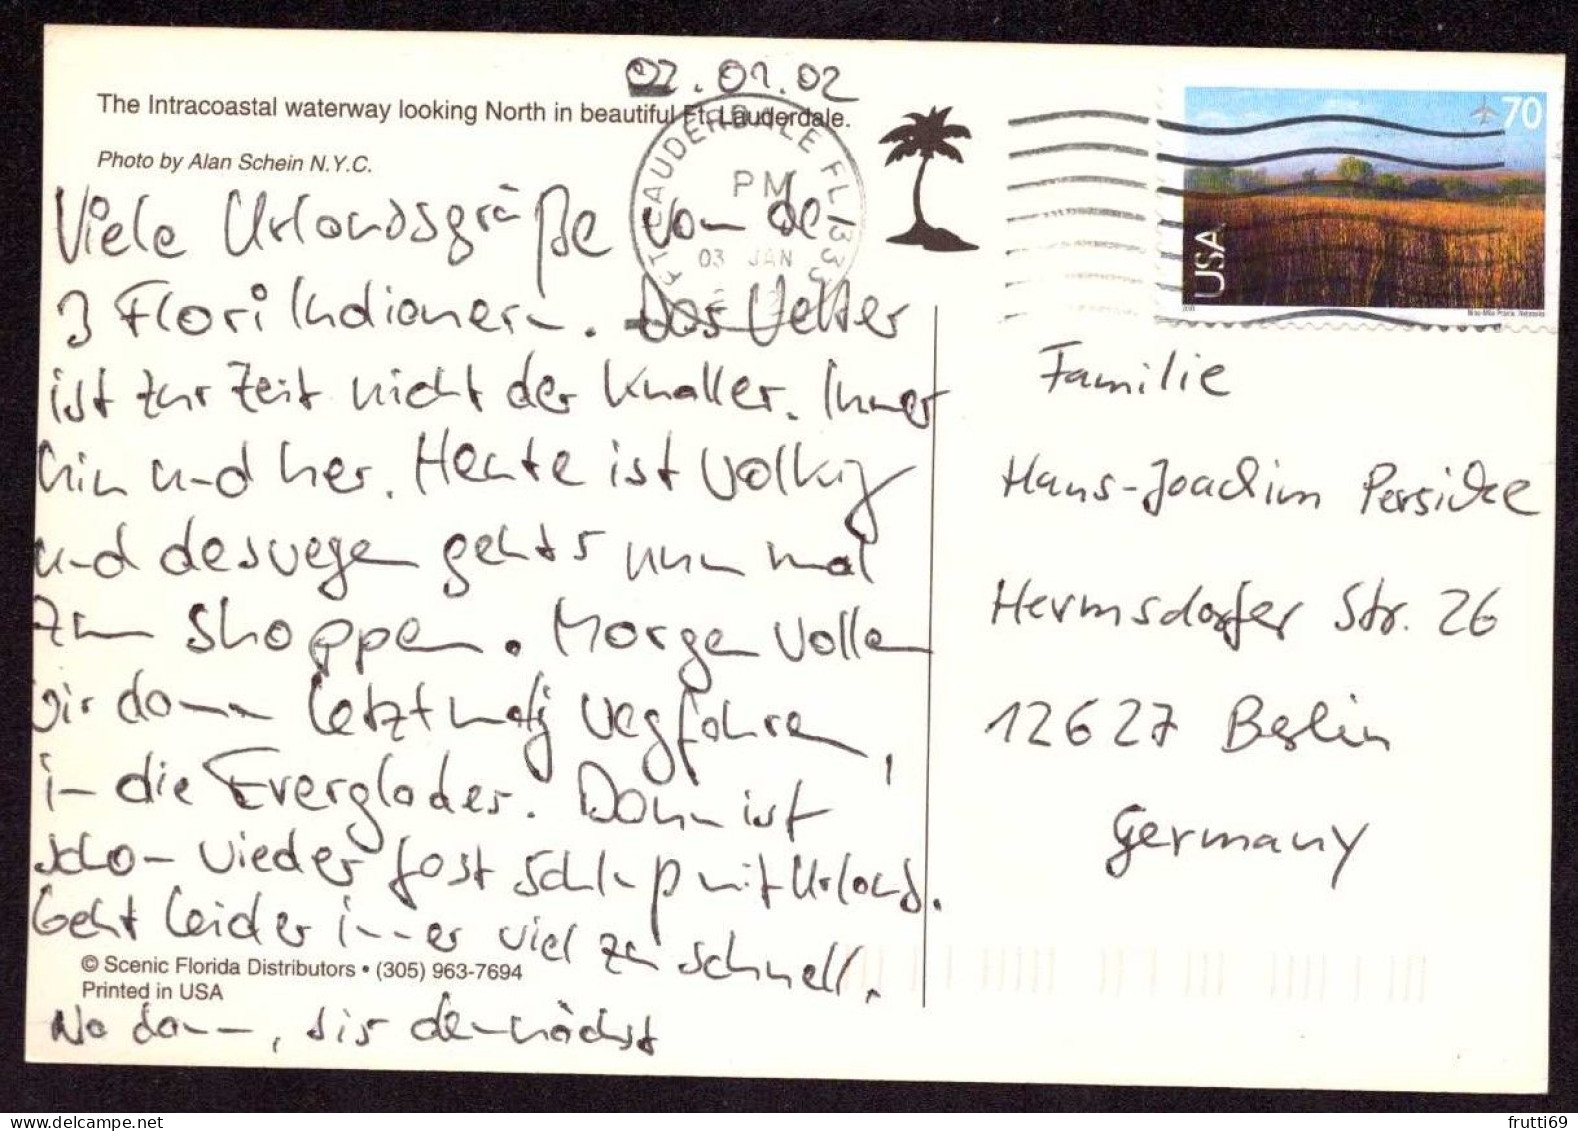 02.01.02
The Intracoastal waterway looking North in beautiful Ft. Lauderdale.
Photo by Alan Schein N.Y.C.
FT LAUDERDALE FL 333
PM
03 JAN
70
USA
Nine-Mile Prairie, Nebraska
Viele Urlaubsgrüße von de
3 Flori Indianern. Das Wetter
ist zur Zeit nicht der Knaller. Immer
hin und her. Heute ist wolkig
und deswegen gehts nun mal
zum shoppen. Morgen wollen
wir dann letztmalig wegfahren,
in die Everglades. Dann ist
schon wieder fast Schluß mit Urlaub.
Geht leider immer viel zu schnell.
Na dann, bis demnächst
© Scenic Florida Distributors • (305) 963-7694
Printed in USA
Familie
Hans-Joachim Persicke
Hermsdorfer Str. 26
12627 Berlin
Germany
frutti69